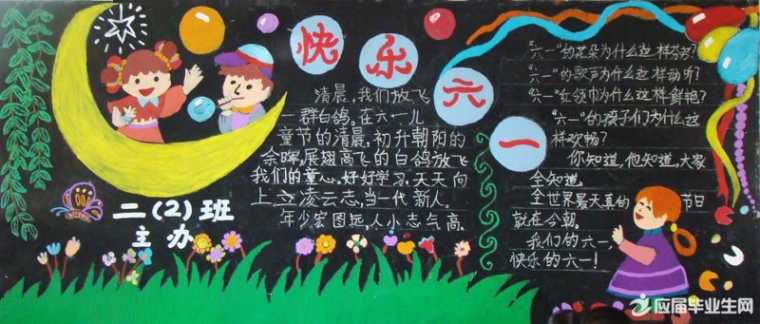 快乐六一
清晨,我们放飞
一群白鸽。在六一儿
童节的清晨,初升朝阳的
余晖,展翅高飞的白鸽放飞
我们的童心,好好学习,天天向
上,立凌云志,当一代新人。
年少宏图远,人小志气高。
二(2)班
主办
"六一"的花朵为什么这样芬芳?
"六一"的歌声为什么这样动听?
"六一"红领巾为什么这样鲜艳?
"六一"的孩子们为什么这
样欢畅?
你知道,他知道,大家
全知道。
全世界最天真的节日
就在今朝。
我们的六一,
快乐的六一!
应届毕业生网